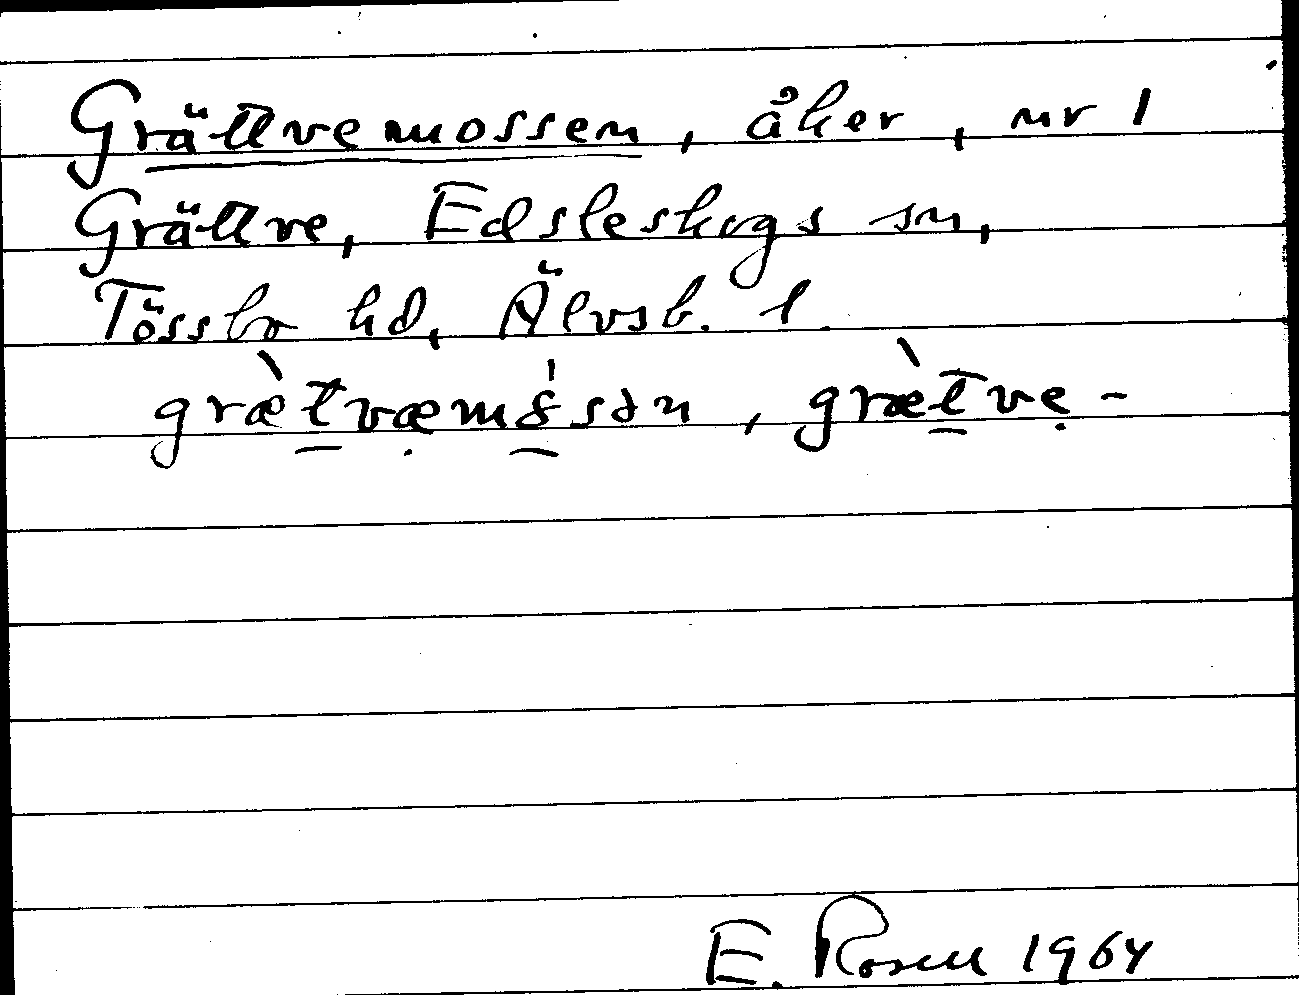 Grättvemossen, åker, nr 1
Grättve, Edsleskogs sn,
Tössbo hd, Älvsb. l.
grætvæmssən, grætve-
E. Rosell 1964